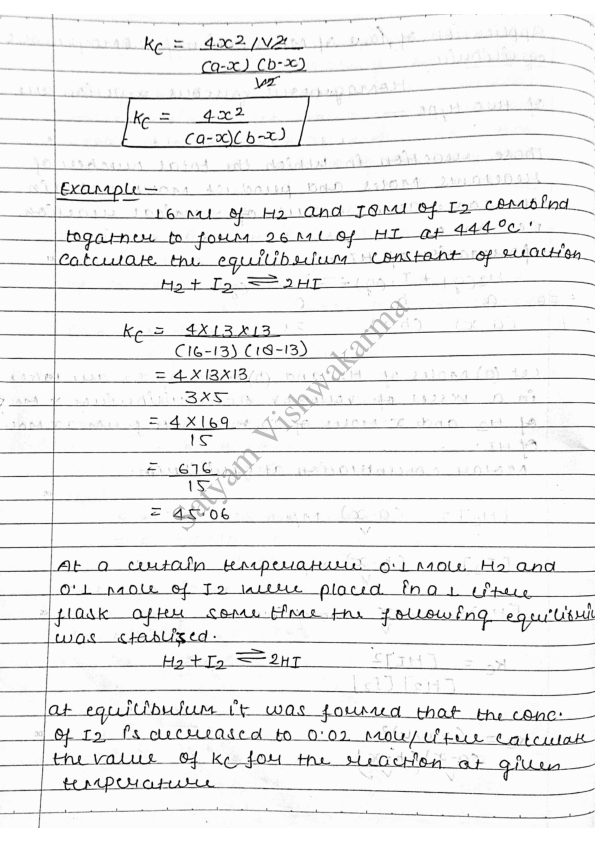 KC = 4x2/V2
(a-x)(b-x)
V2
KC = 4x2
(a-x)(b-x)
Example -
16 Ml of H2 and 18 Ml of I2 combind
togather to form 26 Ml of HI at 444°C.
calculate the equilibrium constant of reaction
H2 + I2 ⇌ 2HI
KC = 4 X 13 X 13
(16-13) (18-13)
= 4 X 13 X 13
3 X 5
= 4 X 169
15
= 676
15
= 45.06
Satyam Vishwakarma
At a certain temperature 0.1 mole H2 and
0.1 mole of I2 were placed in a 1 litre
flask after some time the following equilibri
was stablised.
H2 + I2 ⇌ 2HI
at equilibrium it was founed that the conc.
of I2 is decreased to 0.02 mole/litre calculate
the value of KC for the reaction at given
temperature